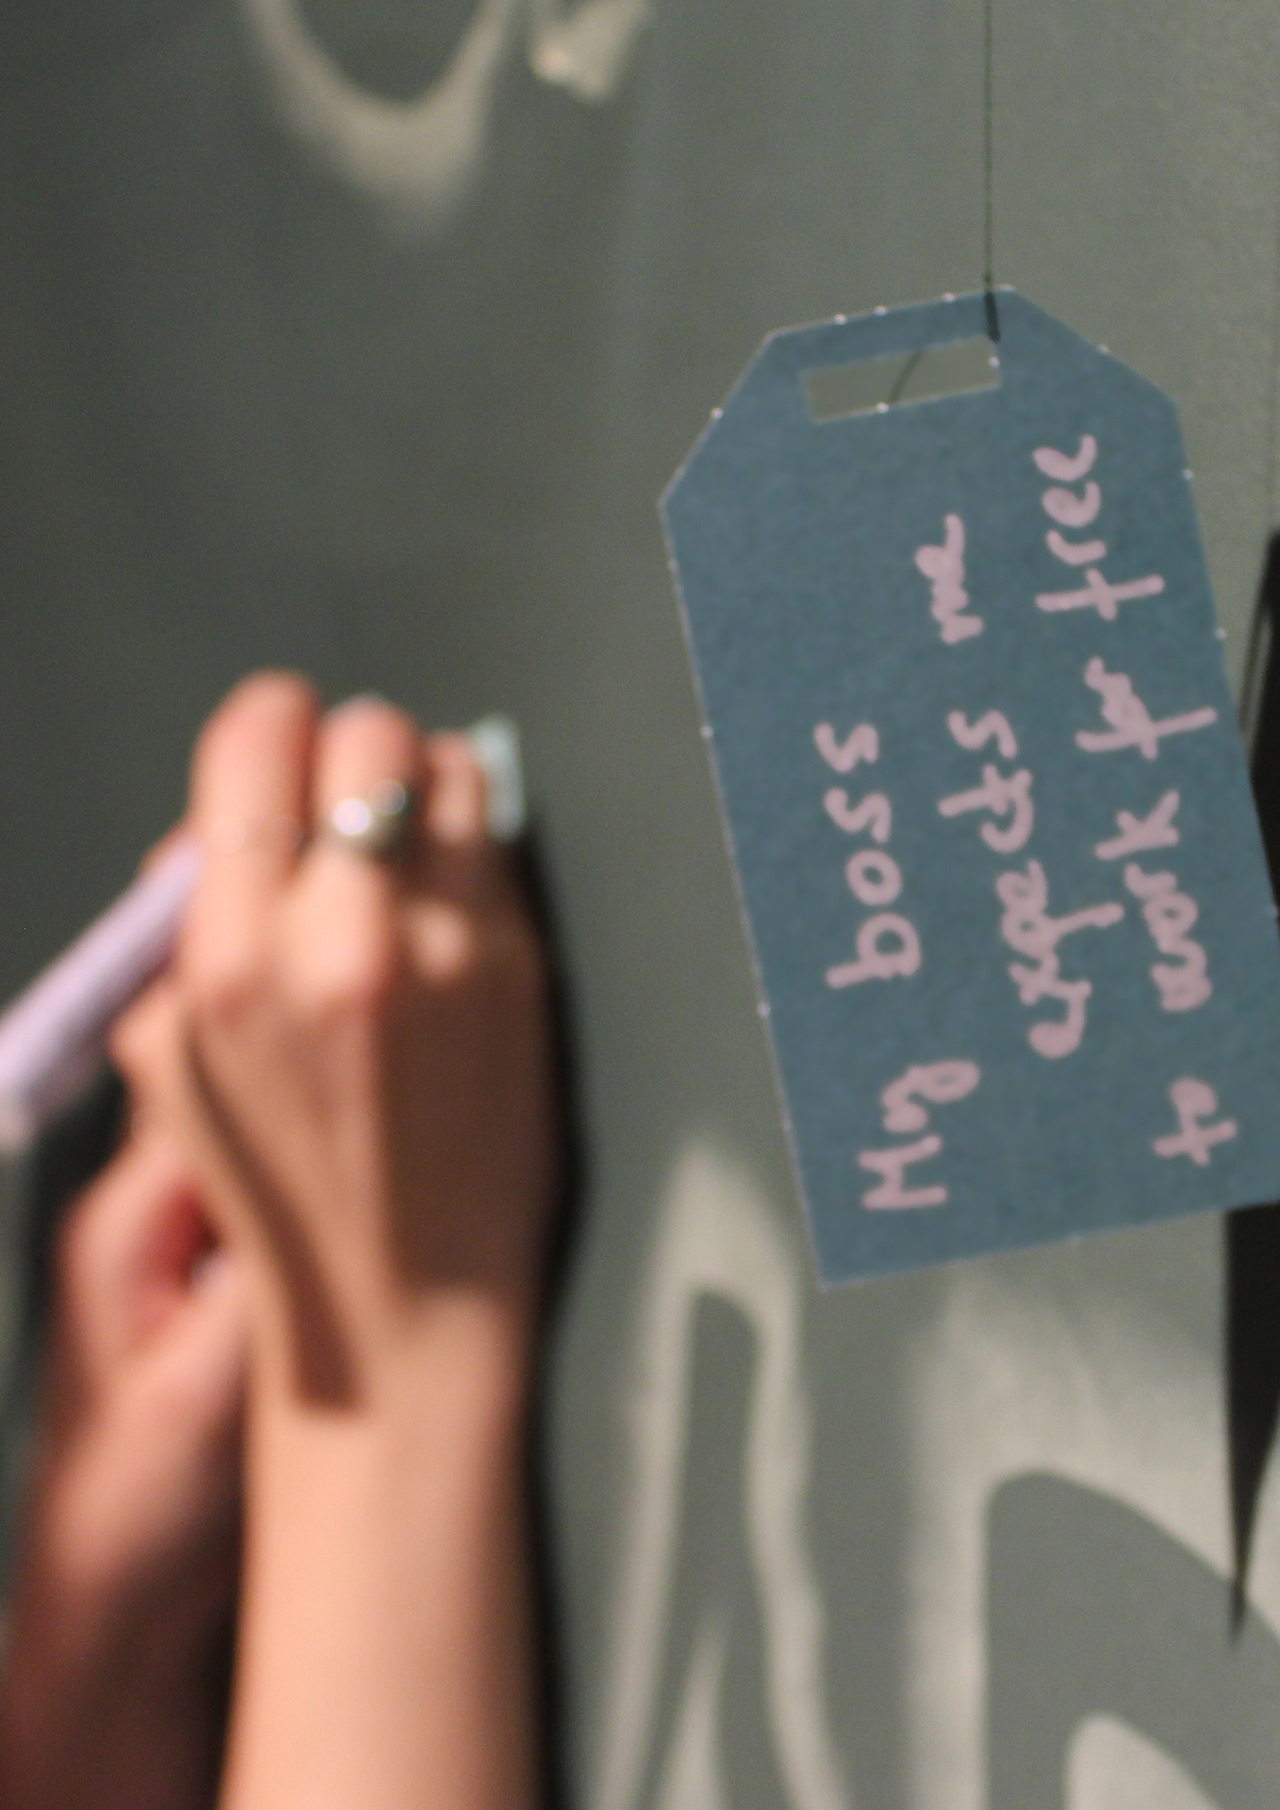 My boss
expects me
to work for free